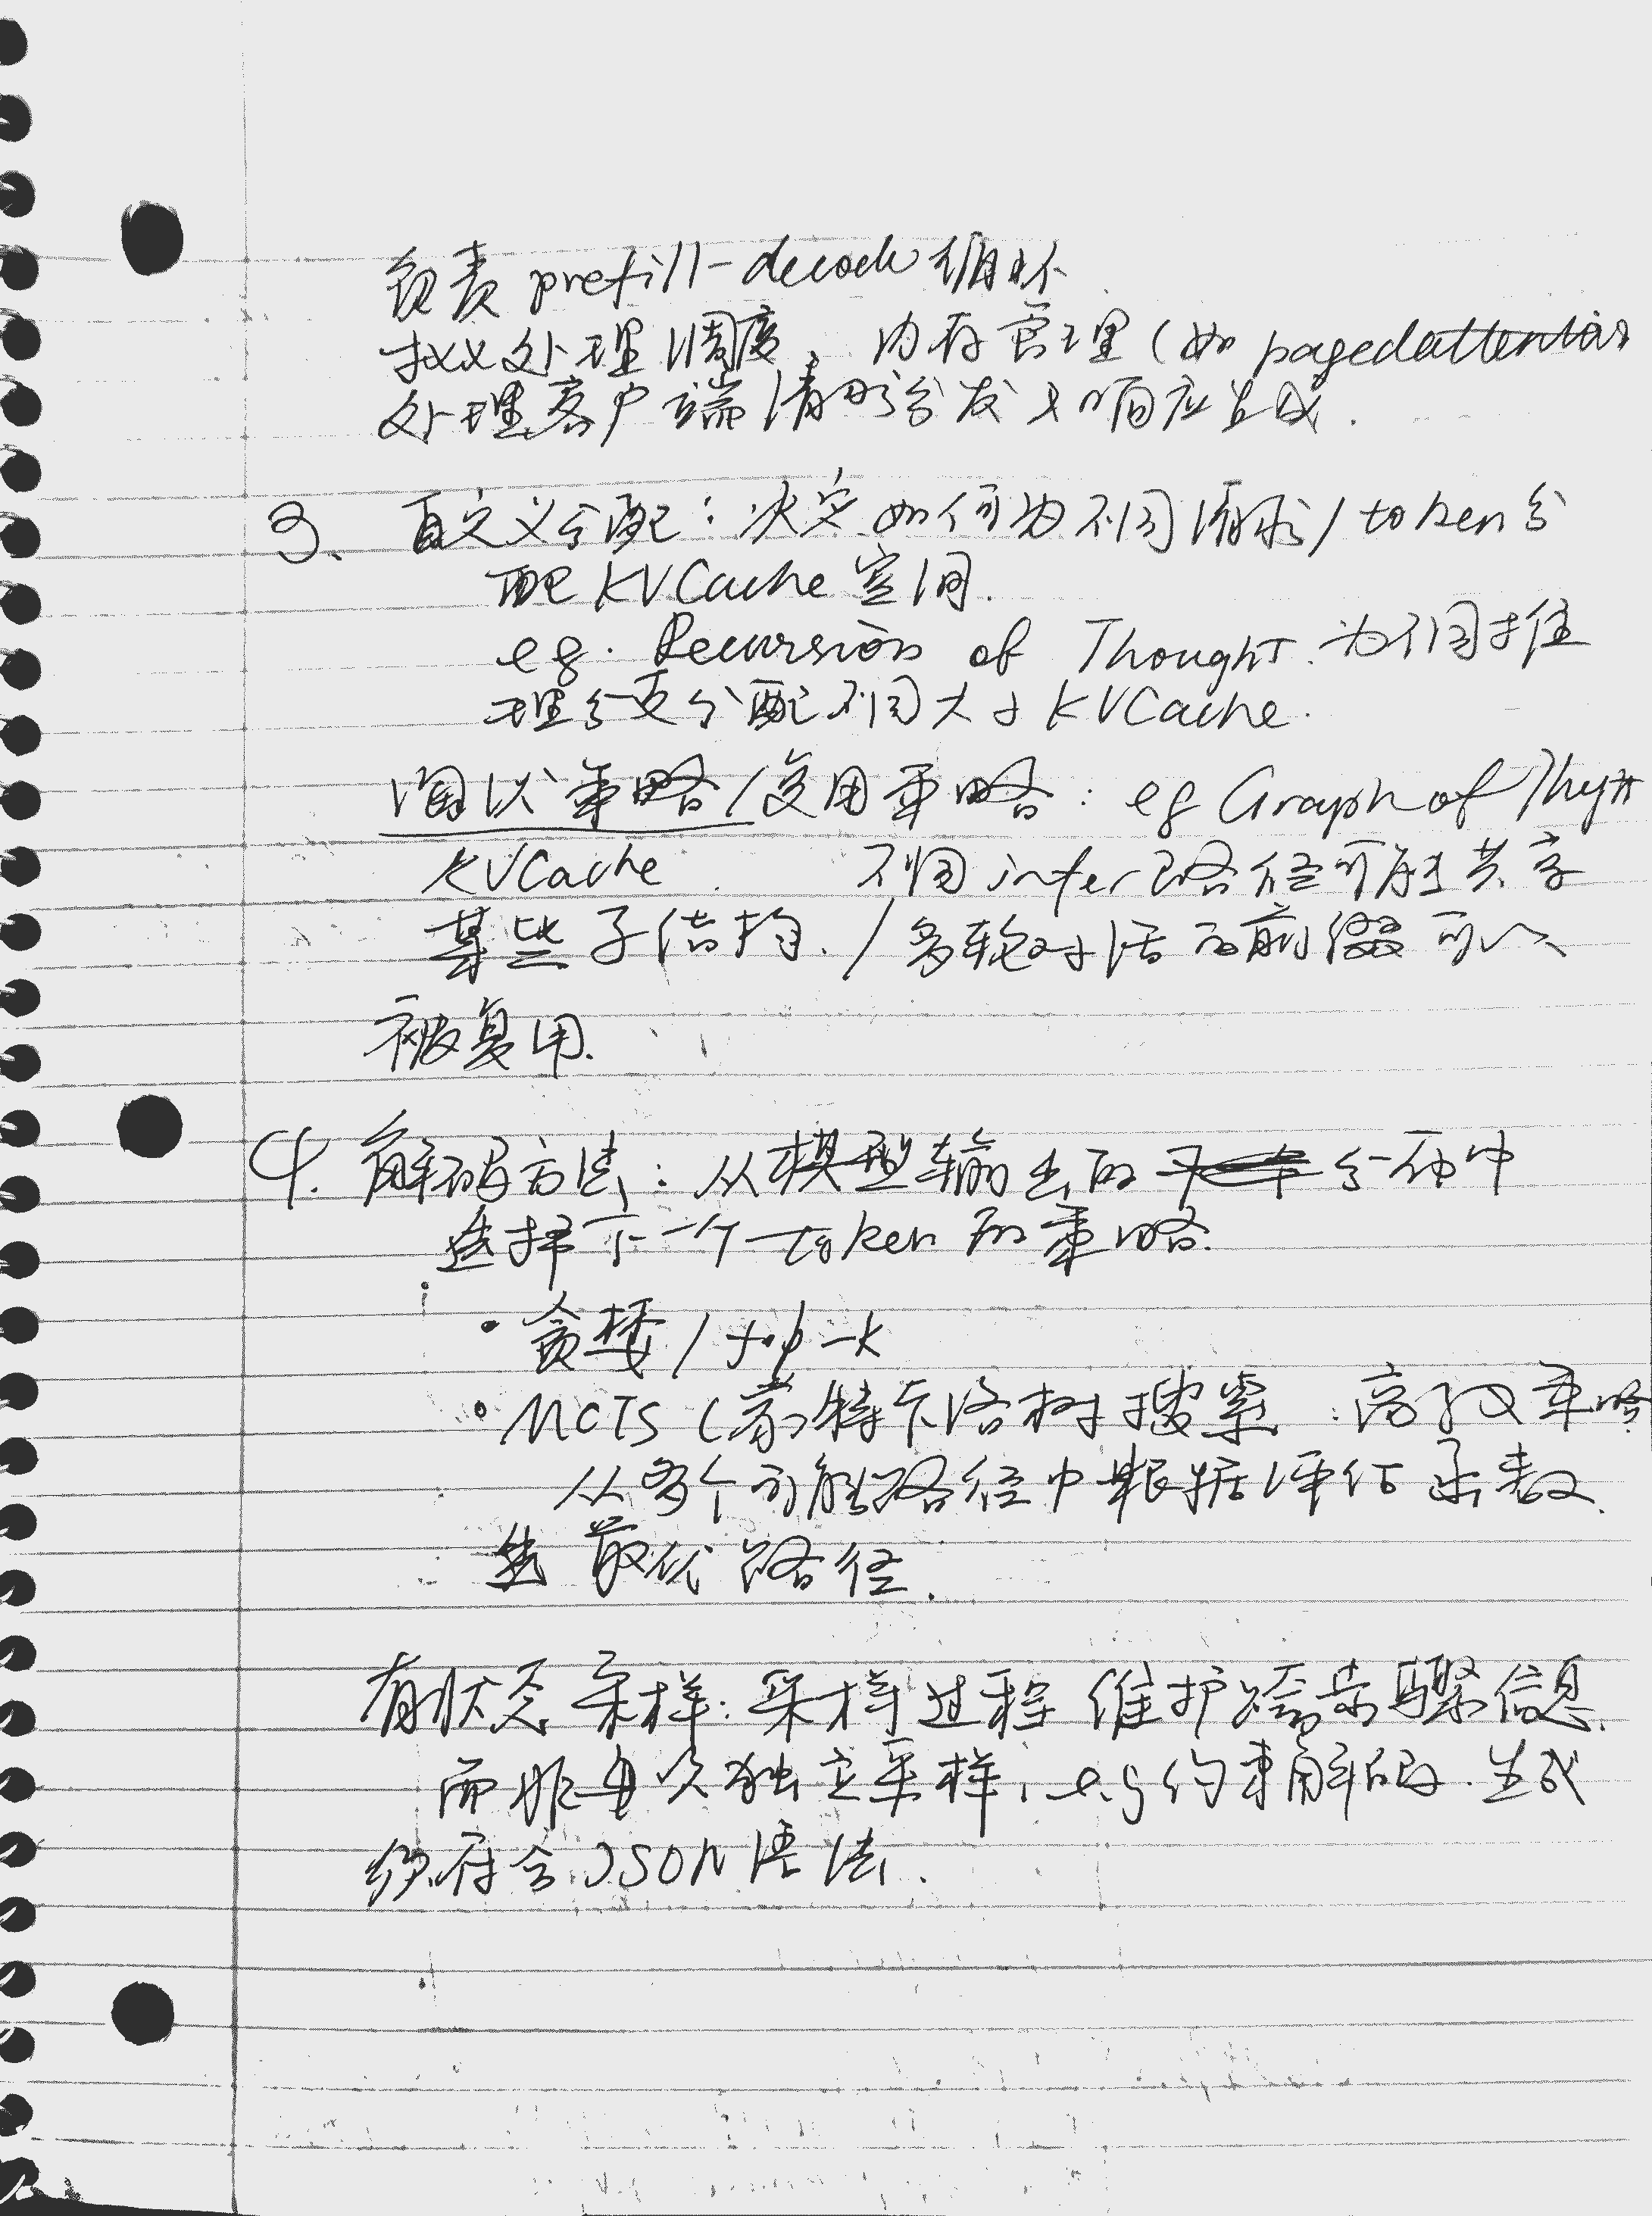 负责 prefill-decode 循环
批处理调度、内存管理 (如 pagedattention
处理客户端请求分发及响应生成.
3、 自定义分配: 决定如何为不同请求/token分
配 KVCache 空间.
eg. Recursion of Thought. 为不同推
理分支分配不同大小 KVCache.
淘汰策略/复用策略: eg Graph of Thought
KVCache. 不同 infer 路径可能共享
某些子结构. / 多轮对话的前缀可以
被复用.
4. 解码方法: 从模型输出的 分布中
选择下一个 token 的策略.
• 贪婪 / top-k
• MCTS (蒙特卡洛树搜索: 高级策略
从多个可能路径中根据评估函数
选最优路径.
有状态采样: 采样过程维护跨步骤信息.
而非每次独立采样, e.g 约束解码. 生成
须符合 JSON 语法.